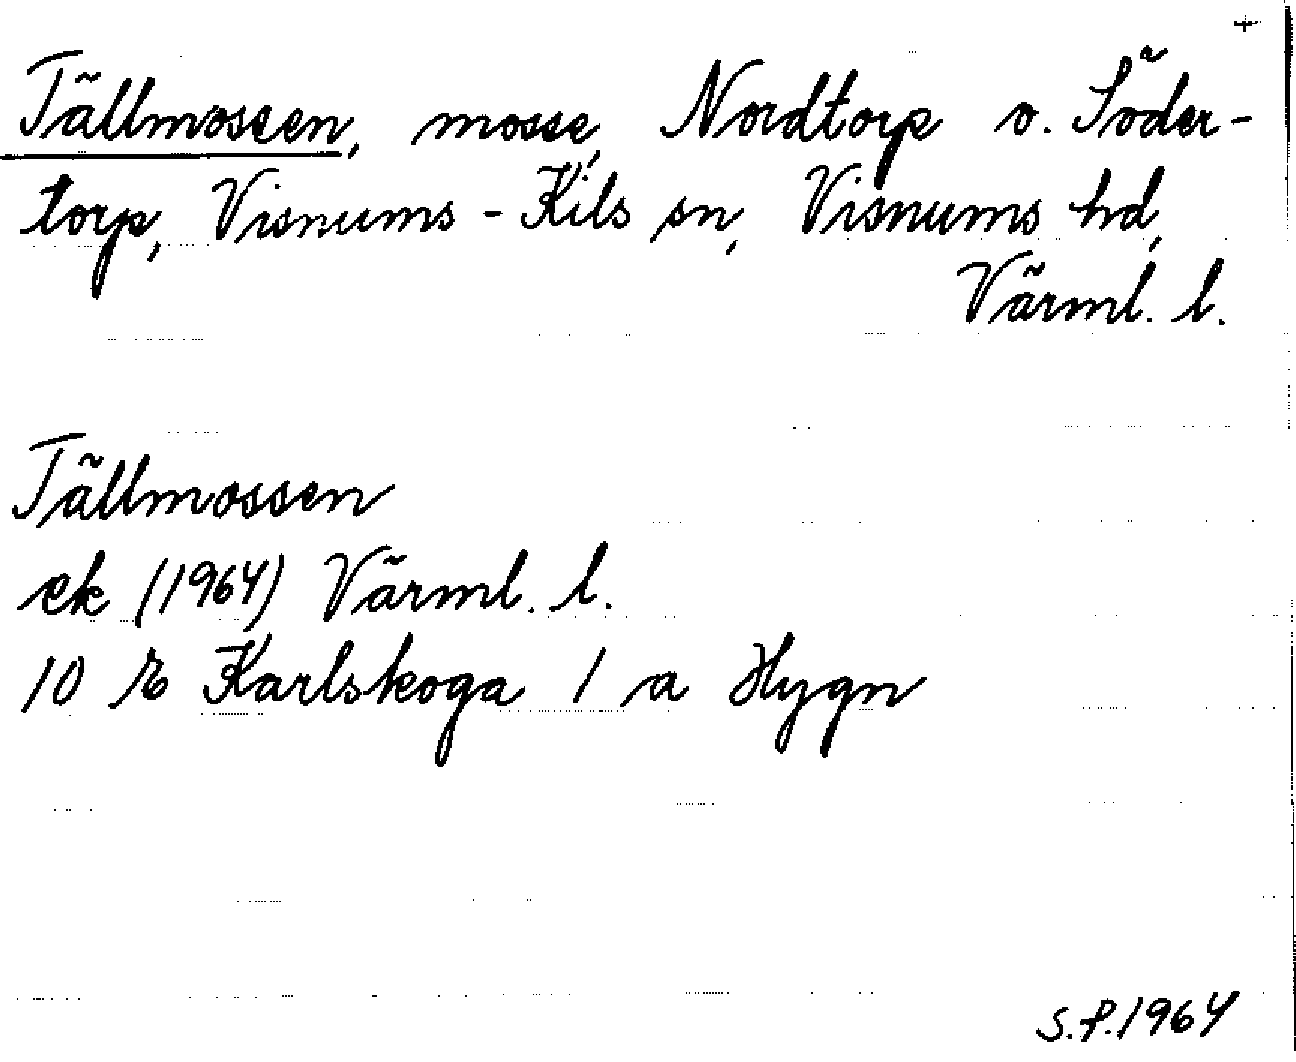 +
Tällmossen, mosse, Nordtorp o. Söder-
torp, Visnums-Kils sn, Visnums hd,
Värml. l.
Tällmossen
ek (1964) Värml. l.
10 E Karlskoga 1 a Hygn
S.P. 1964